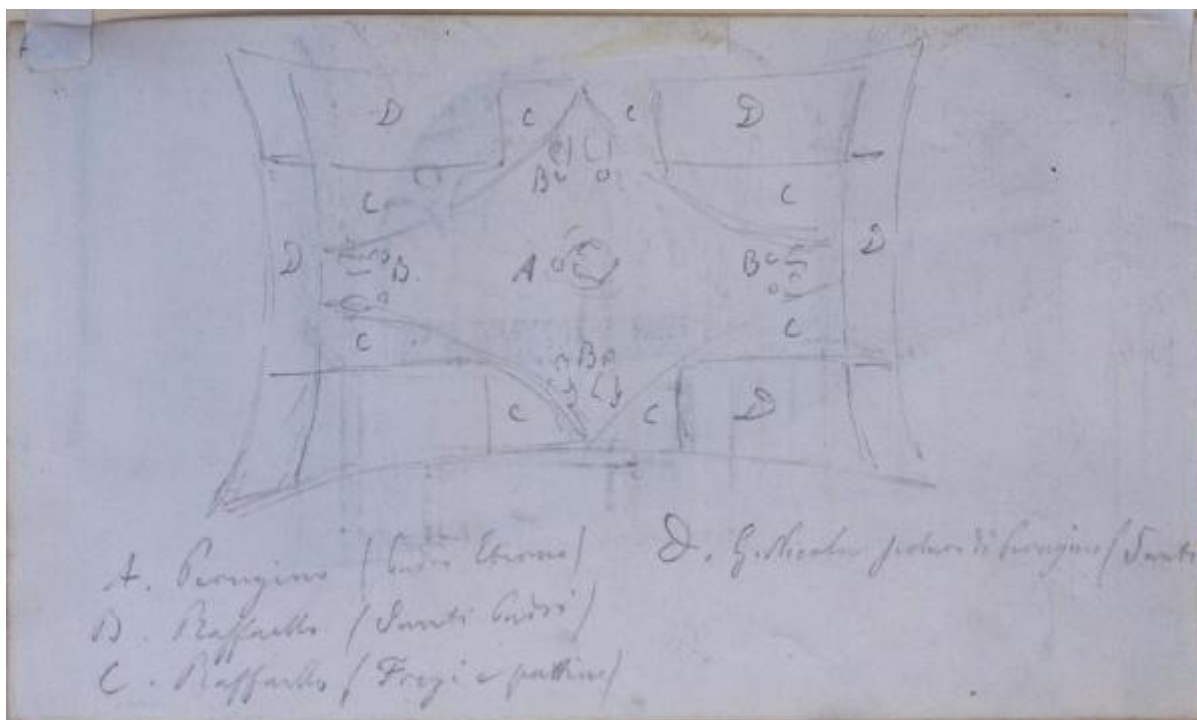 D C C D
B
C C
D B. A B D
C C
B
C C D
A. Perugino (Padre Eterno)
B. Raffaello (Santi Padri)
C. Raffaello (Fregi e puttini)
D. G. Nicola scolaro di Perugino (Santi